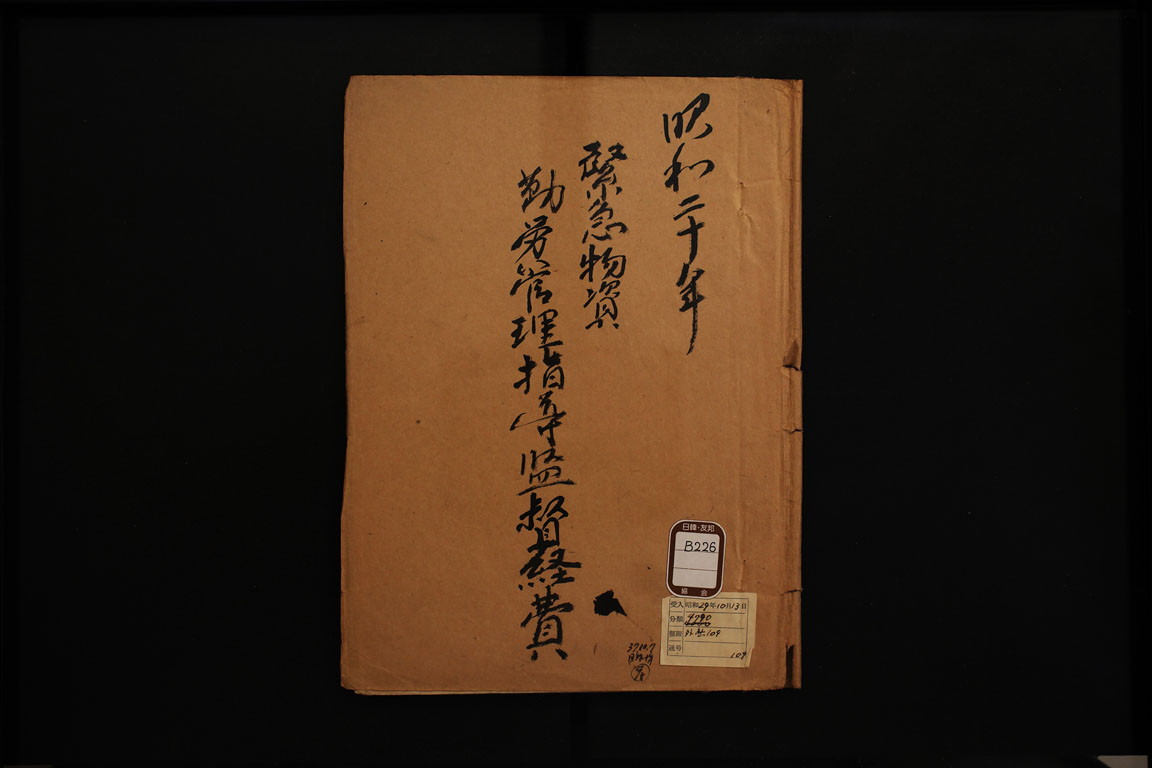 昭和二十年
緊急物資
勤労管理指導監督経費
日韓・友邦
B226
協会
受入 昭和29年10月13日
分類 9790
整理 外生109
番号 109
37.10.7